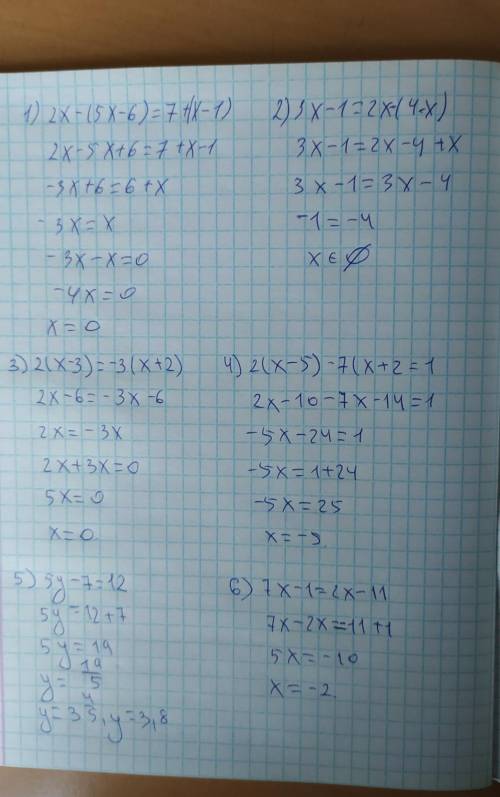 1) 2x-(5x-6)=7+(x-1)
2x-5x+6=7+x-1
-3x+6=6+x
-3x=x
-3x-x=0
-4x=0
x=0
2) 3x-1=2x-(4-x)
3x-1=2x-4+x
3x-1=3x-4
-1=-4
x∈∅
3) 2(x-3)=-3(x+2)
2x-6=-3x-6
2x=-3x
2x+3x=0
5x=0
x=0
4) 2(x-5)-7(x+2=1
2x-10-7x-14=1
-5x-24=1
-5x=1+24
-5x=25
x=-5
5) 5y-7=12
5y=12+7
5y=19
y=19/5
y=3 4/5, y=3,8
6) 7x-1=2x-11
7x-2x=-11+1
5x=-10
x=-2